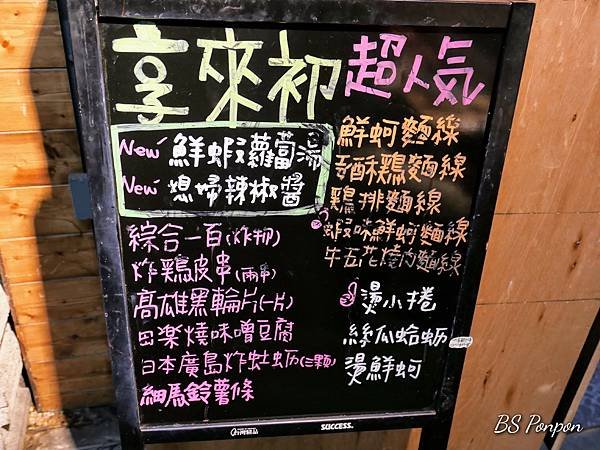 享來初 超人気
New 鮮蝦蘿蔔湯
New 媳婦辣椒醬
綜合一百(炸物)
炸鶏皮串(兩串)
高雄黑輪片(一片)
田楽燒味噌豆腐
日本廣島炸牡蛎(三顆)
細馬鈴薯條
鮮蚵麵線
酥鶏麵線
鶏排麵線
蝦味鮮蚵麵線
牛五花燒肉麵線
燙小捲
絲瓜蛤蛎
燙鮮蚵
SUCCESS
BS Ponpon